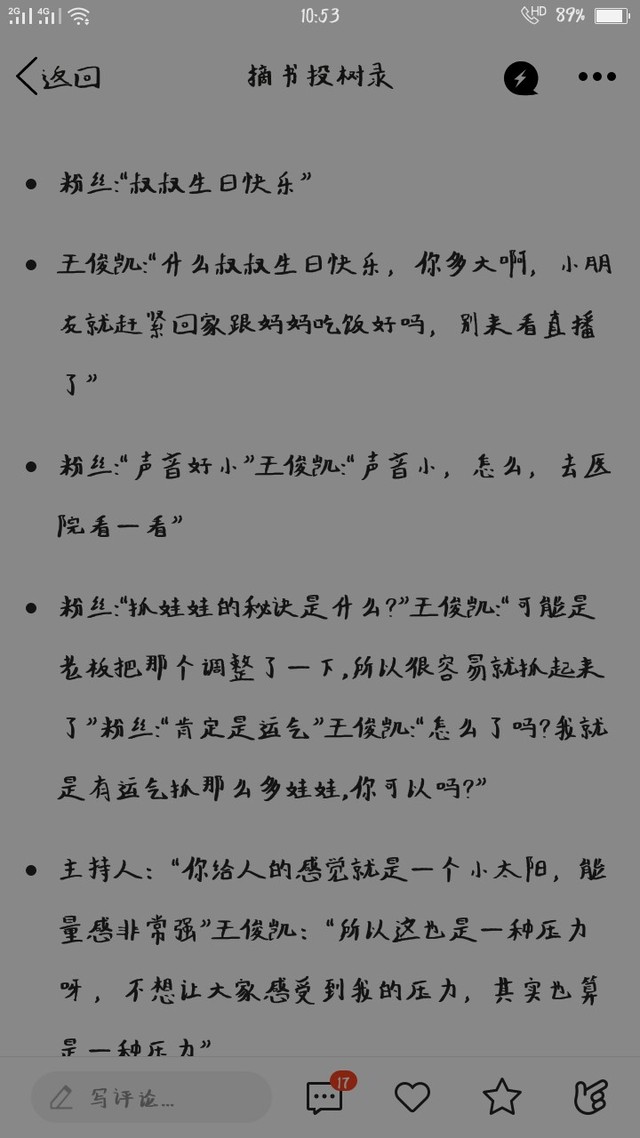 2G 4G 10:53 HD 89%
返回 摘书投树录
粉丝:“叔叔生日快乐”
王俊凯:“什么叔叔生日快乐，你多大啊，小朋
友就赶紧回家跟妈妈吃饭好吗，别来看直播
了”
粉丝:“声音好小”王俊凯:“声音小，怎么，去医
院看一看”
粉丝:“抓娃娃的秘诀是什么?”王俊凯:“可能是
老板把那个调整了一下,所以很容易就抓起来
了”粉丝:“肯定是运气”王俊凯:“怎么了吗?我就
是有运气抓那么多娃娃,你可以吗?”
主持人：“你给人的感觉就是一个小太阳，能
量感非常强”王俊凯：“所以这也是一种压力
呀，不想让大家感受到我的压力，其实也算
是一种压力”
写评论... 17